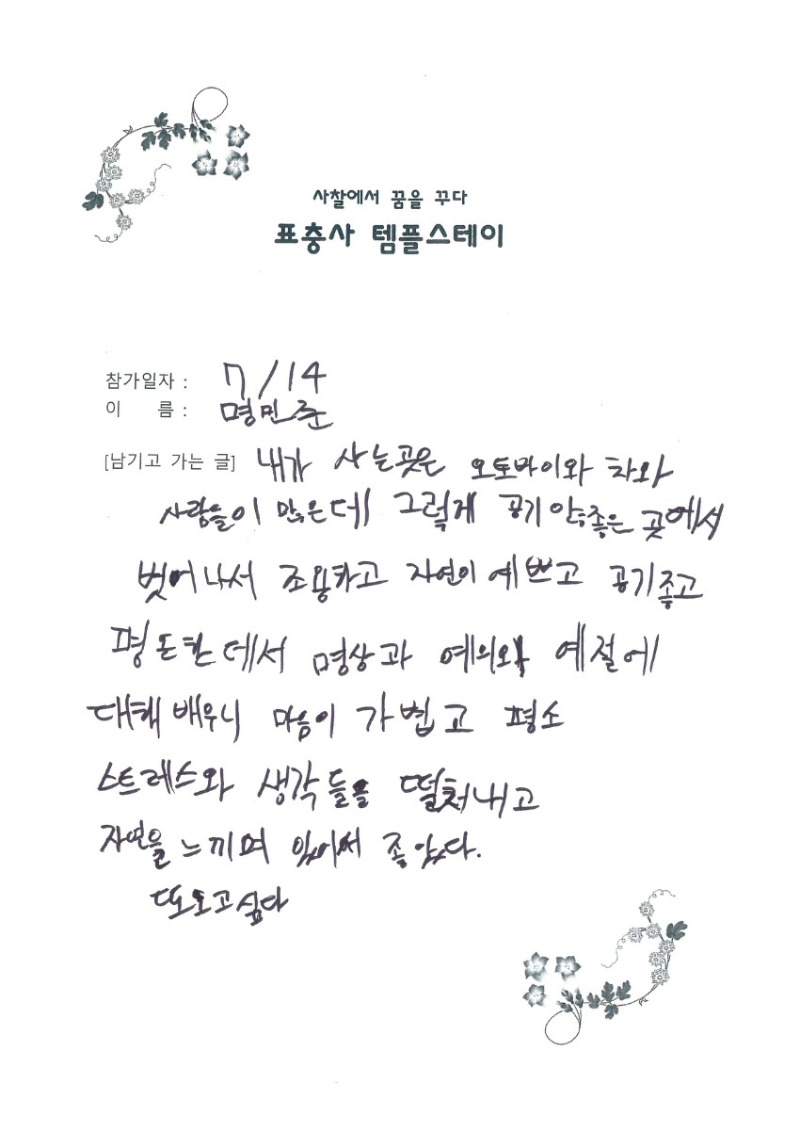 사찰에서 꿈을 꾸다
표충사 템플스테이
참가일자 : 7/14
이 름 : 명민준
[남기고 가는 글] 내가 사는곳은 오토바이와 차와
사람들이 많은데 그렇게 공기 안좋은 곳에서
벗어나서 조용하고 자연이 예쁘고 공기좋고
평온한데서 명상과 예의와 예절에
대해 배우니 마음이 가볍고 평소
스트레스와 생각들을 떨쳐내고
자연을 느끼며 있어서 좋았다.
또오고싶다